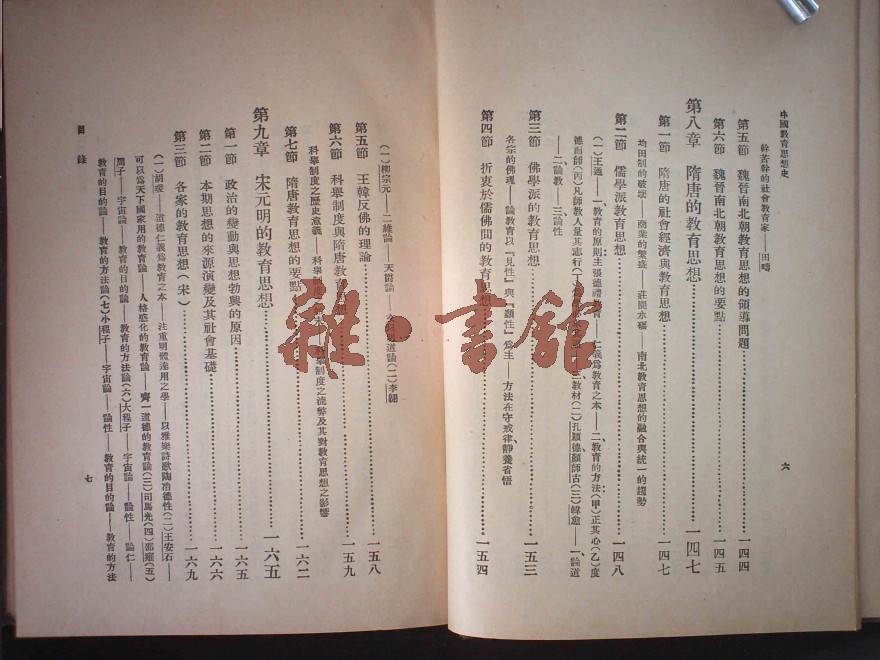 中國教育思想史
六
幹苦幹的社會教育家——田疇
第五節 魏晉南北朝教育思想的領導問題 一四四
第六節 魏晉南北朝教育思想的要點 一四五
第八章 隋唐的教育思想 一四七
第一節 隋唐的社會經濟與教育思想 一四七
均田制的破壞——商業的繁盛——莊園水磑——南北教育思想的融合與統一的趨勢
第二節 儒學派教育思想 一四八
(一)王通——一、教育的原則主張德禮 仁義爲教育之本——二、教育的方法(甲)正其心(乙)度
德而師(丙)凡師教人量其志行(丁) 三、教材(二)孔穎德顏師古(三)韓愈——一、論道
——二、論教——三、論性
第三節 佛學派的教育思想 一五三
各宗的佛理——論教育以『見性』與『顯性』爲主——方法在守戒律靜養省悟
第四節 折衷於儒佛間的教育思想 一五四
(一)柳宗元——二維論——天爵論——文以明道論(二)李翱
第五節 王韓反佛的理論 一五八
第六節 科舉制度與隋唐教育思想 一五九
科舉制度之歷史意義——科舉制度 科舉制度之流弊及其對教育思想之影響
第七節 隋唐教育思想的要點 一六二
第九章 宋元明的教育思想 一六五
第一節 政治的變動與思想勃興的原因 一六五
第二節 本期思想的來源演變及其社會基礎 一六六
第三節 各家的教育思想(宋) 一六九
(一)胡瑗——道德仁義爲教育之本——注重明體達用之學——以雅樂詩歌陶冶德性(二)王安石——
可以爲天下國家用的教育論——人格感化的教育論——齊一道德的教育論(三)司馬光(四)邵雍(五)
周子——宇宙論——教育的目的論——教育的方法論(六)大程子——宇宙論——論性——論仁——
教育的目的論——教育的方法論(七)小程子——宇宙論——論性——教育的目的論——教育的方法
目錄
七
雜·書館